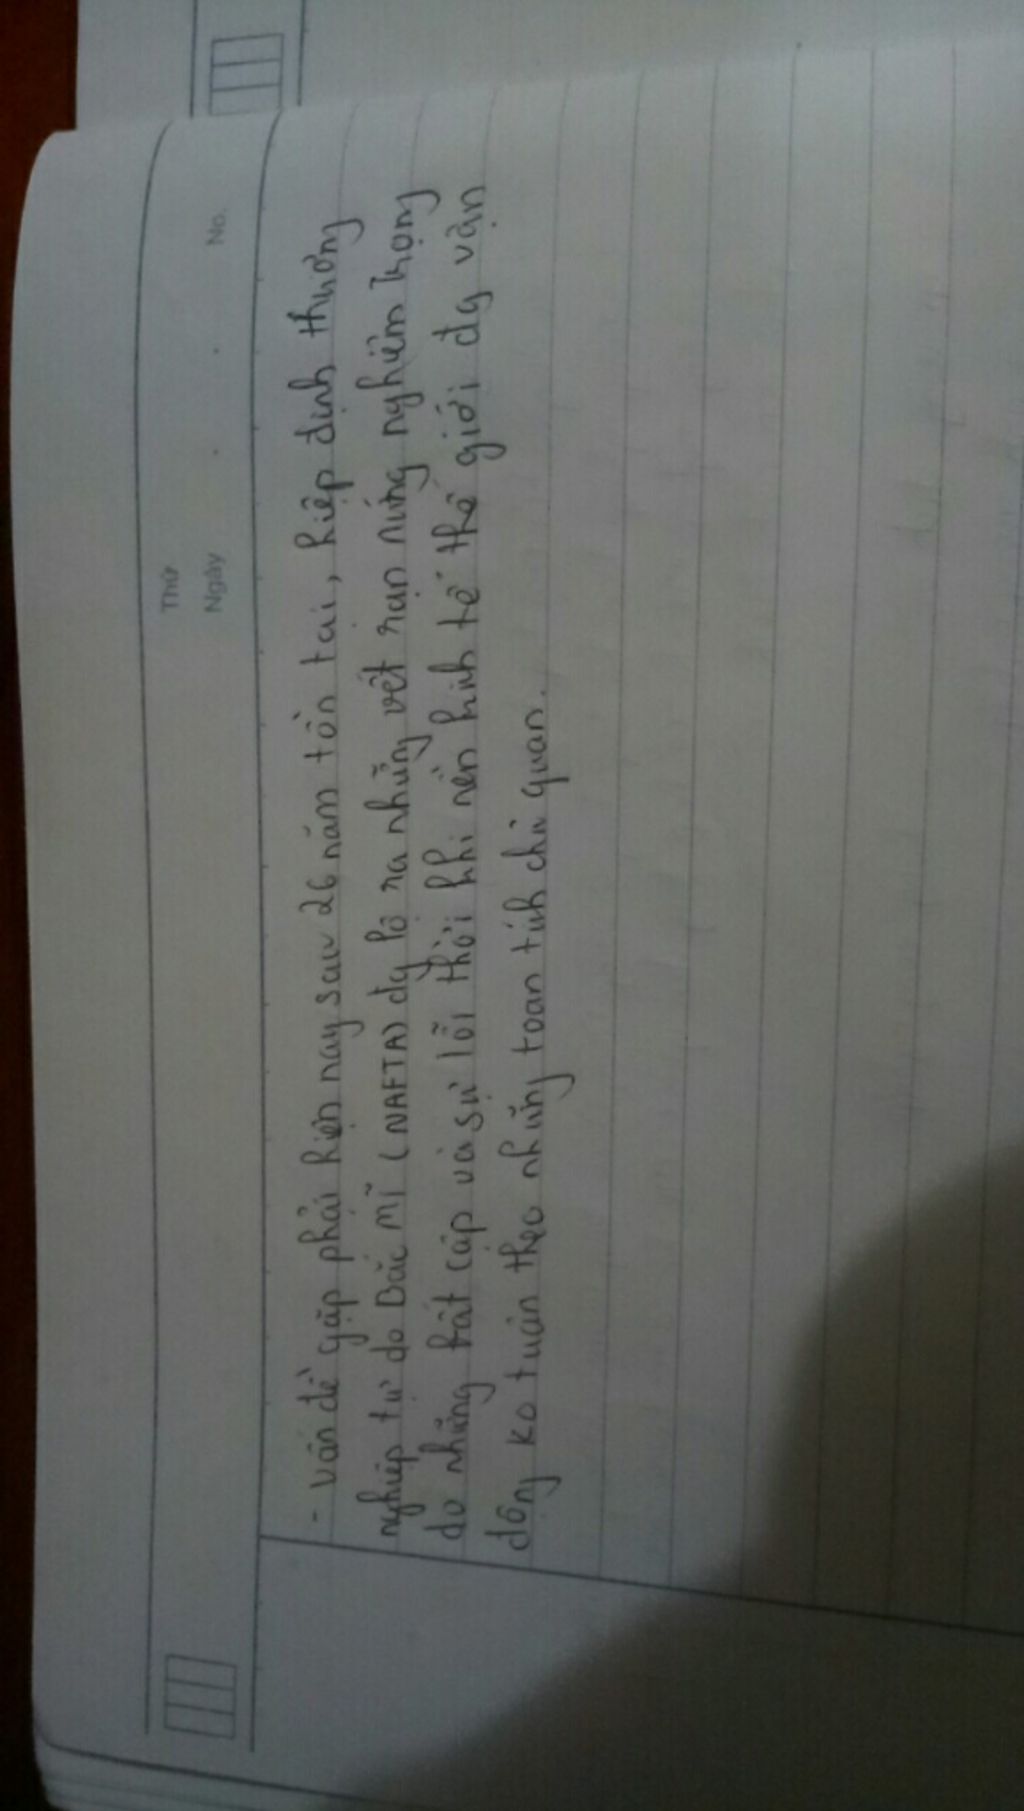 Thứ
Ngày
No.
- vấn đề gặp phải hiện nay sau 26 năm tồn tại, hiệp định thương
nghiệp tự do Bắc Mĩ (NAFTA) đg lộ ra những vết rạn nứng nghiêm trọng
do những bất cập và sự lỗi thời khi nền kinh tế thế giới đg vận
động ko tuân theo những toan tính chủ quan.